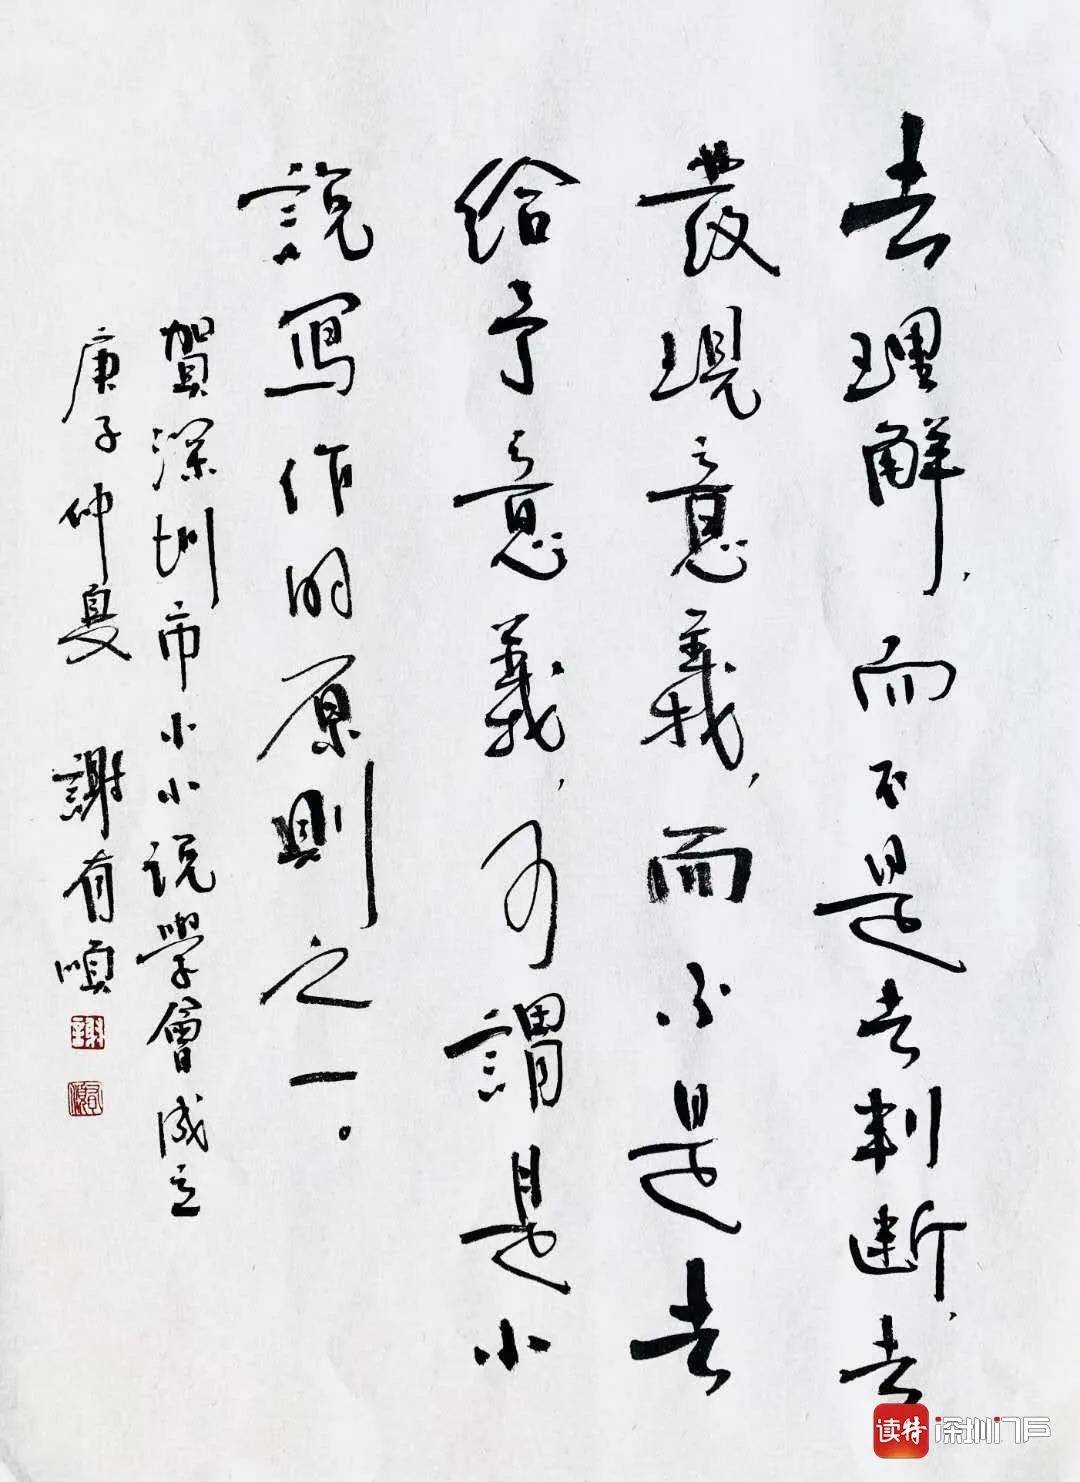 去理解，而不是去判断，去
發現意義，而不是去
給予意義，可謂是小
說寫作的原則之一。
賀深圳市小小说學會成立
庚子仲夏 謝有順
謝
有順
读特 深圳门户